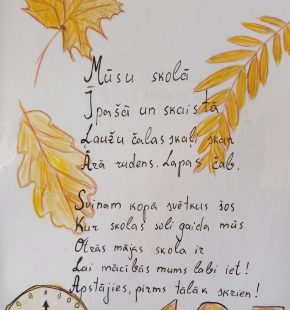 Mūsu skolā
Īpašā un skaistā
Ļaužu čalas skaļi skan
Ārā rudens. Lapas čab.
Svinam kopā svētkus šos
Kur skolas soli gaida mūs
Otrās mājas skola ir
Lai mācībās mums labi iet!
Apstājies, pirms tālāk skrien!